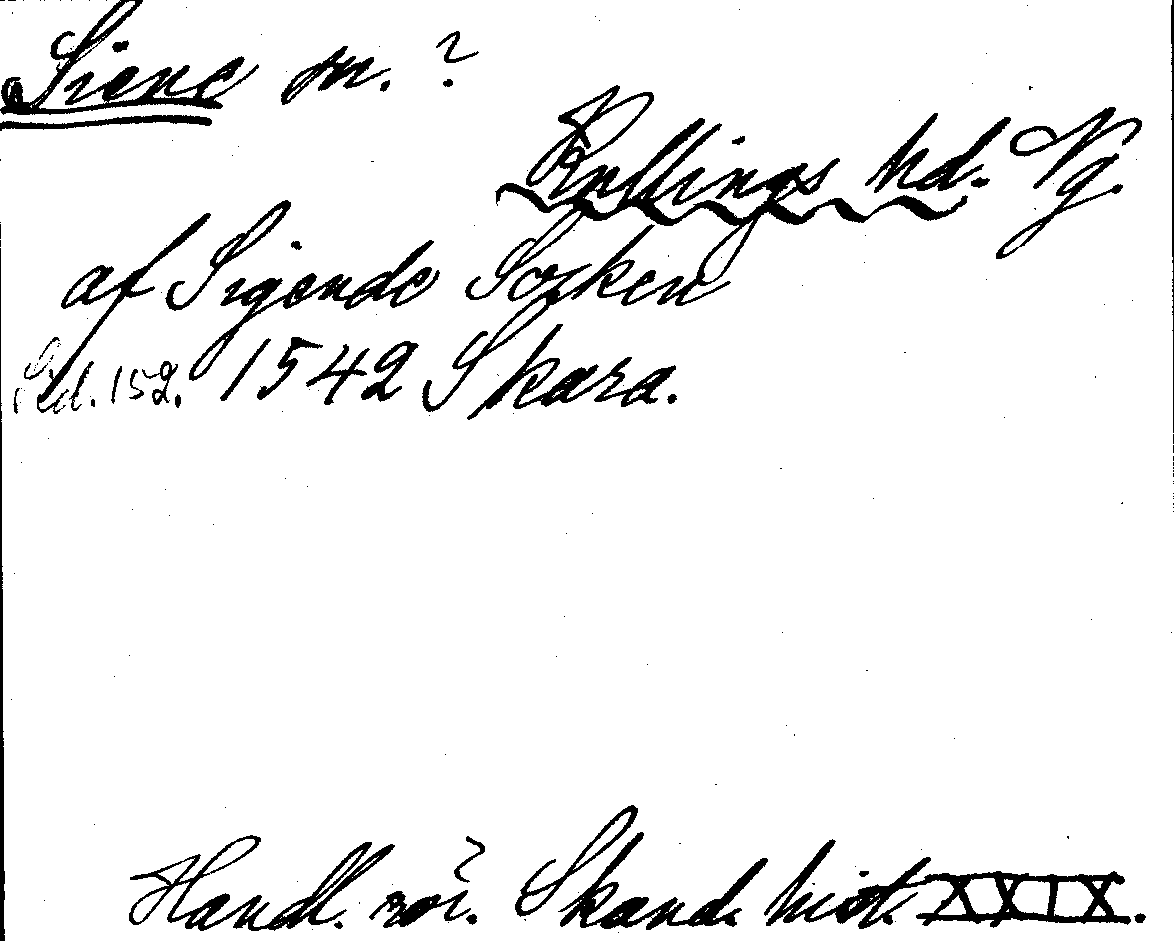 Siene sn. ?
Kullings hd. Vg.
af Sigende Socken
Sid. 152. 1542 Skara.
Handl. rör. Skand. hist. XXIX.